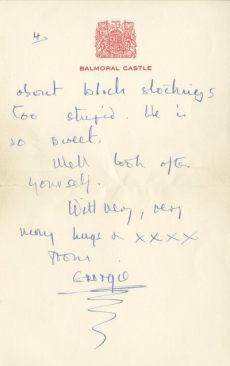 4.
BALMORAL CASTLE
about black stockings
too stupid. He is
so sweet.
Well look after
yourself.
With very, very
many hugs & x x x x
from